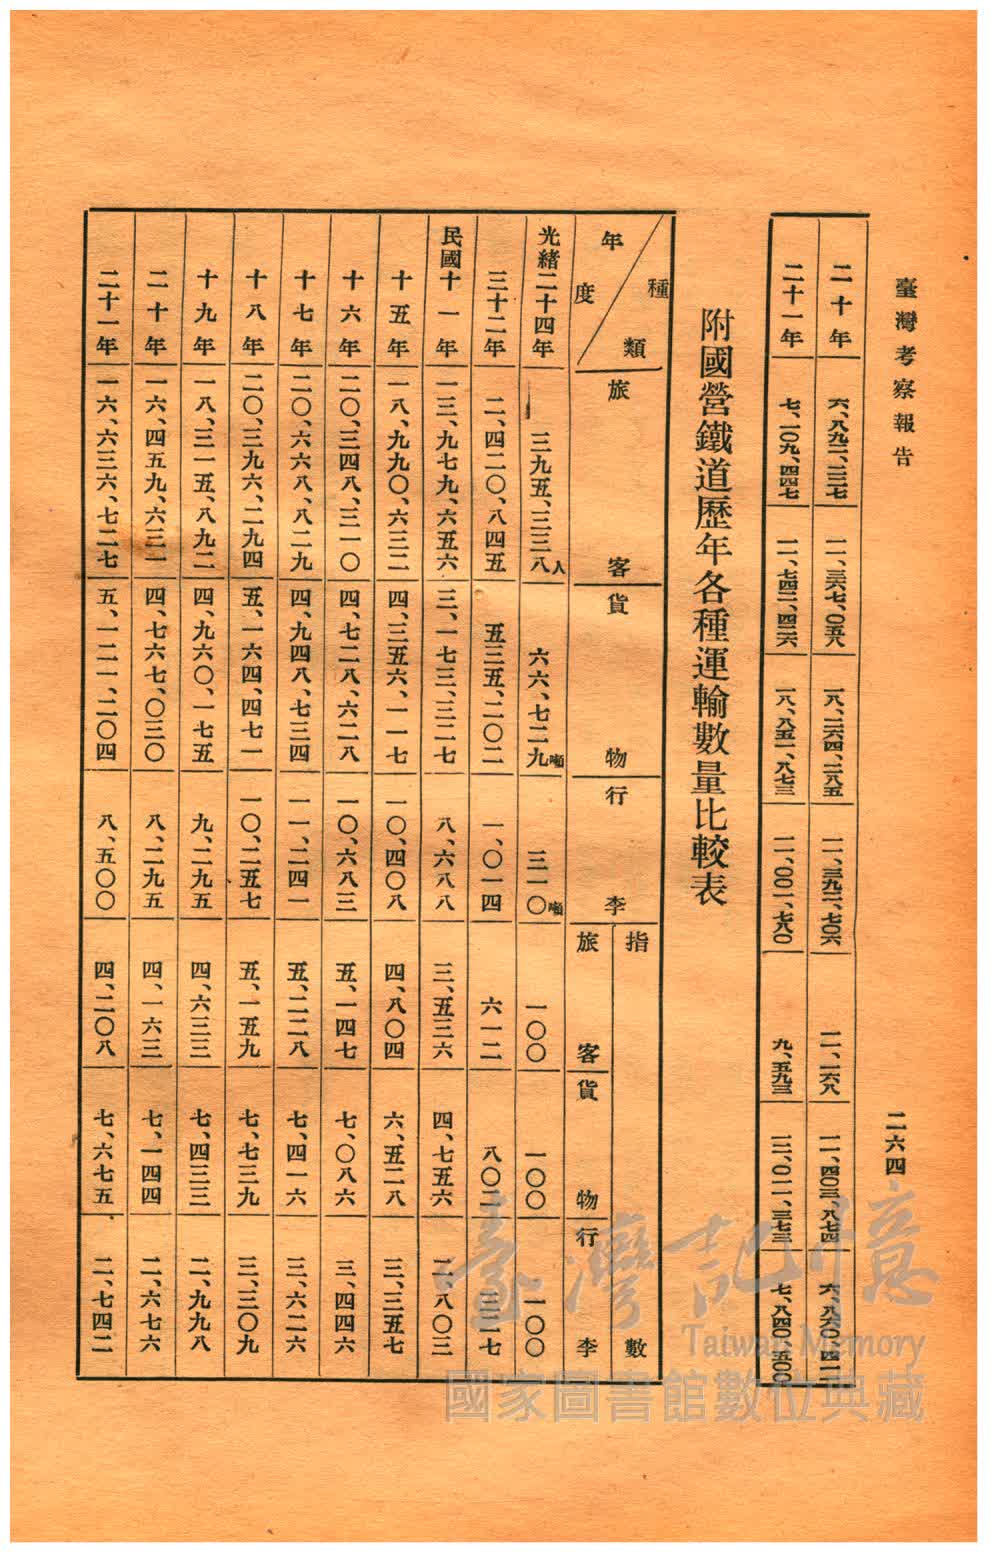 臺灣考察報告
二六四
二十年 六、八九二、二三七 一一、三六七、〇五八 一八、二六四、二八五 一一、三九二、七〇六 一一、一六八 一一、四〇三、八七四 六、八六〇、四一一
二十一年 七、一〇九、四四七 一一、七四二、四二六 一八、八五一、八七三 一一、〇〇一、七八〇 九、五九三 一一、〇一一、三七三 七、八四〇、五〇〇
附國營鐵道歷年各種運輸數量比較表
種類
年度
旅客
貨物
行李
指數
旅客
貨物
行李
光緒二十四年 三九五、三三八人 六六、七二九噸 三一〇噸 一〇〇 一〇〇 一〇〇
三十二年 二、四二〇、八四五 五三五、二〇二 一、〇一四 六一二 八〇二 三二七
民國十一年 一三、九七九、六五六 三、一七三、三二七 八、六八八 三、五三六 四、七五六 二、八〇三
十五年 一八、九九〇、六三二 四、三五六、一一七 一〇、四〇八 四、八〇四 六、五二八 三、三五七
十六年 二〇、三四八、三一〇 四、七二八、六二八 一〇、六八三 五、一四七 七、〇八六 三、四四六
十七年 二〇、六六八、八二九 四、九四八、七三四 一一、二四一 五、二二八 七、四一六 三、六二六
十八年 二〇、三九六、二九四 五、一六四、四七一 一〇、二五七 五、一五九 七、七三九 三、三〇九
十九年 一八、三一五、八九二 四、九六〇、一七五 九、二九五 四、六三三 七、四三三 二、九九八
二十年 一六、四五九、六三一 四、七六七、〇三〇 八、二九五 四、一六三 七、一四四 二、六七六
二十一年 一六、六三六、七二七 五、一二一、二〇四 八、五〇〇 四、二〇八 七、六七五 二、七四二
臺灣記憶
Taiwan Memory
國家圖書館數位典藏